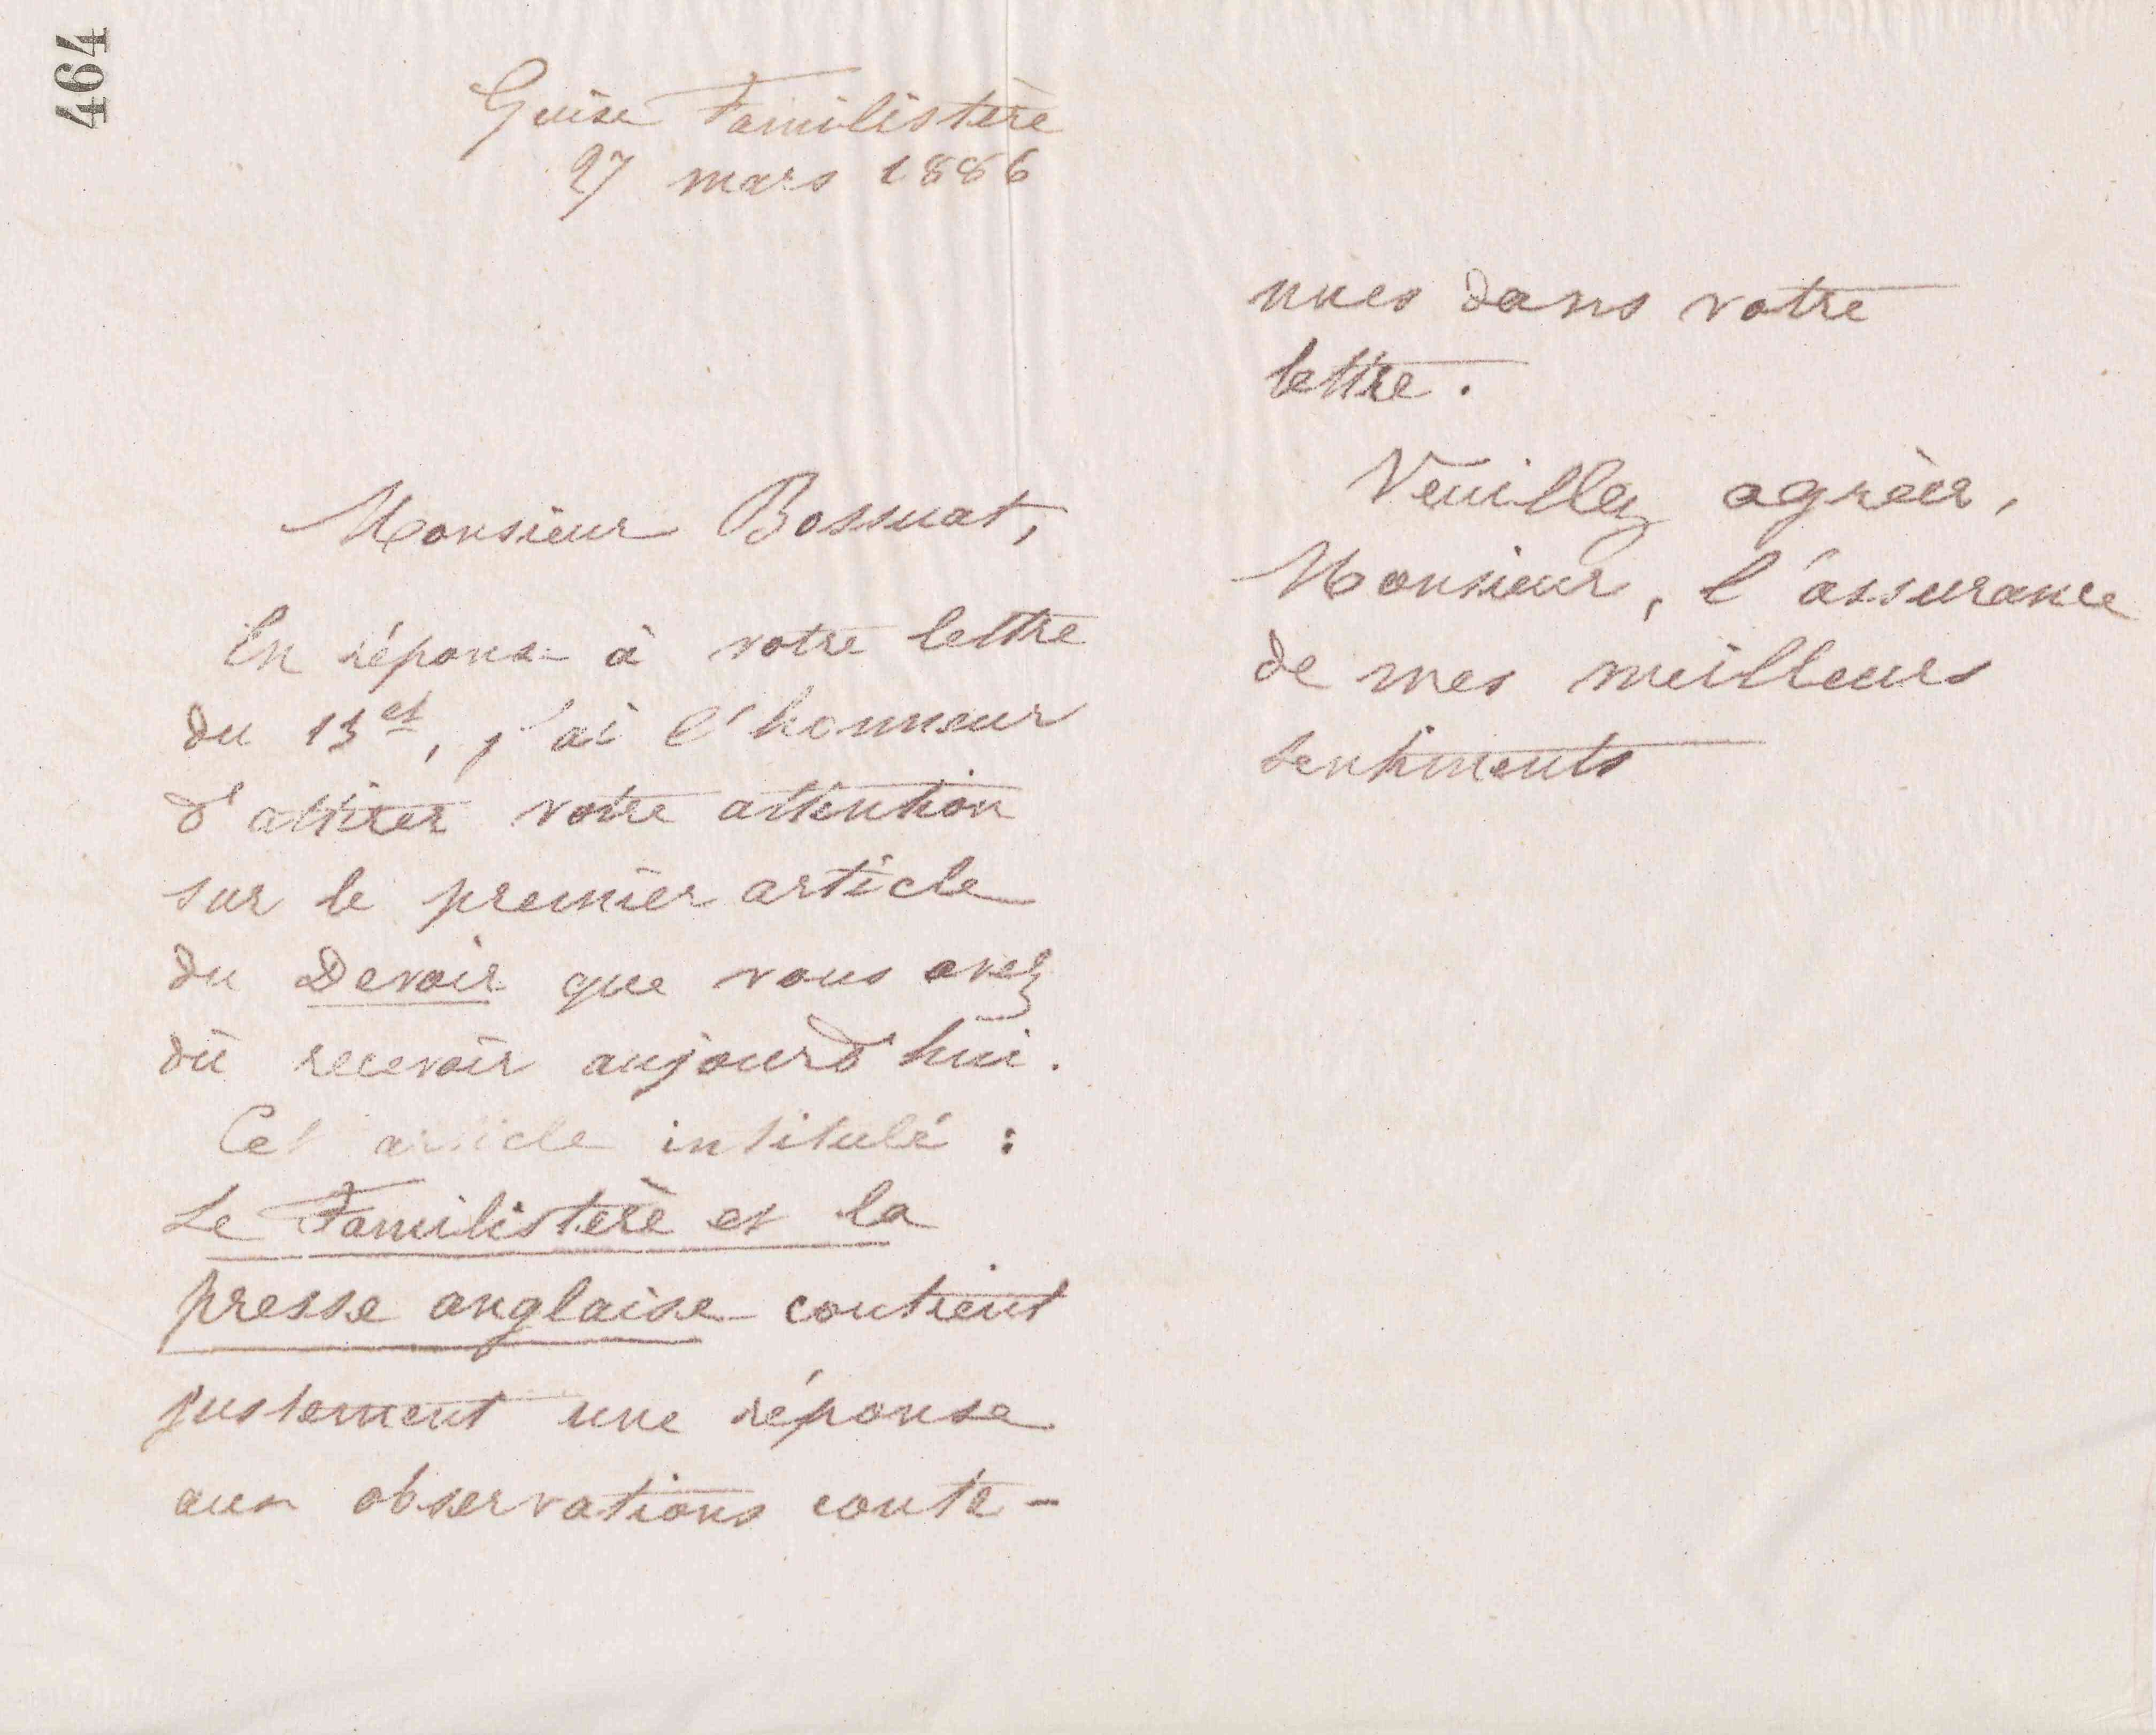 464
Guise Familistère
27 mars 1886
Monsieur Bossuat,
En réponse à votre lettre
du 13 ct, j'ai l'honneur
d'attirer votre attention
sur le premier article
du Devoir que vous avez
dû recevoir aujourd'hui.
Cet article intitulé :
Le Familistère et la
presse anglaise contient
justement une réponse
aux observations conte-
nues dans votre
lettre.
Veuillez agréer,
Monsieur, l'assurance
de mes meilleurs
sentiments